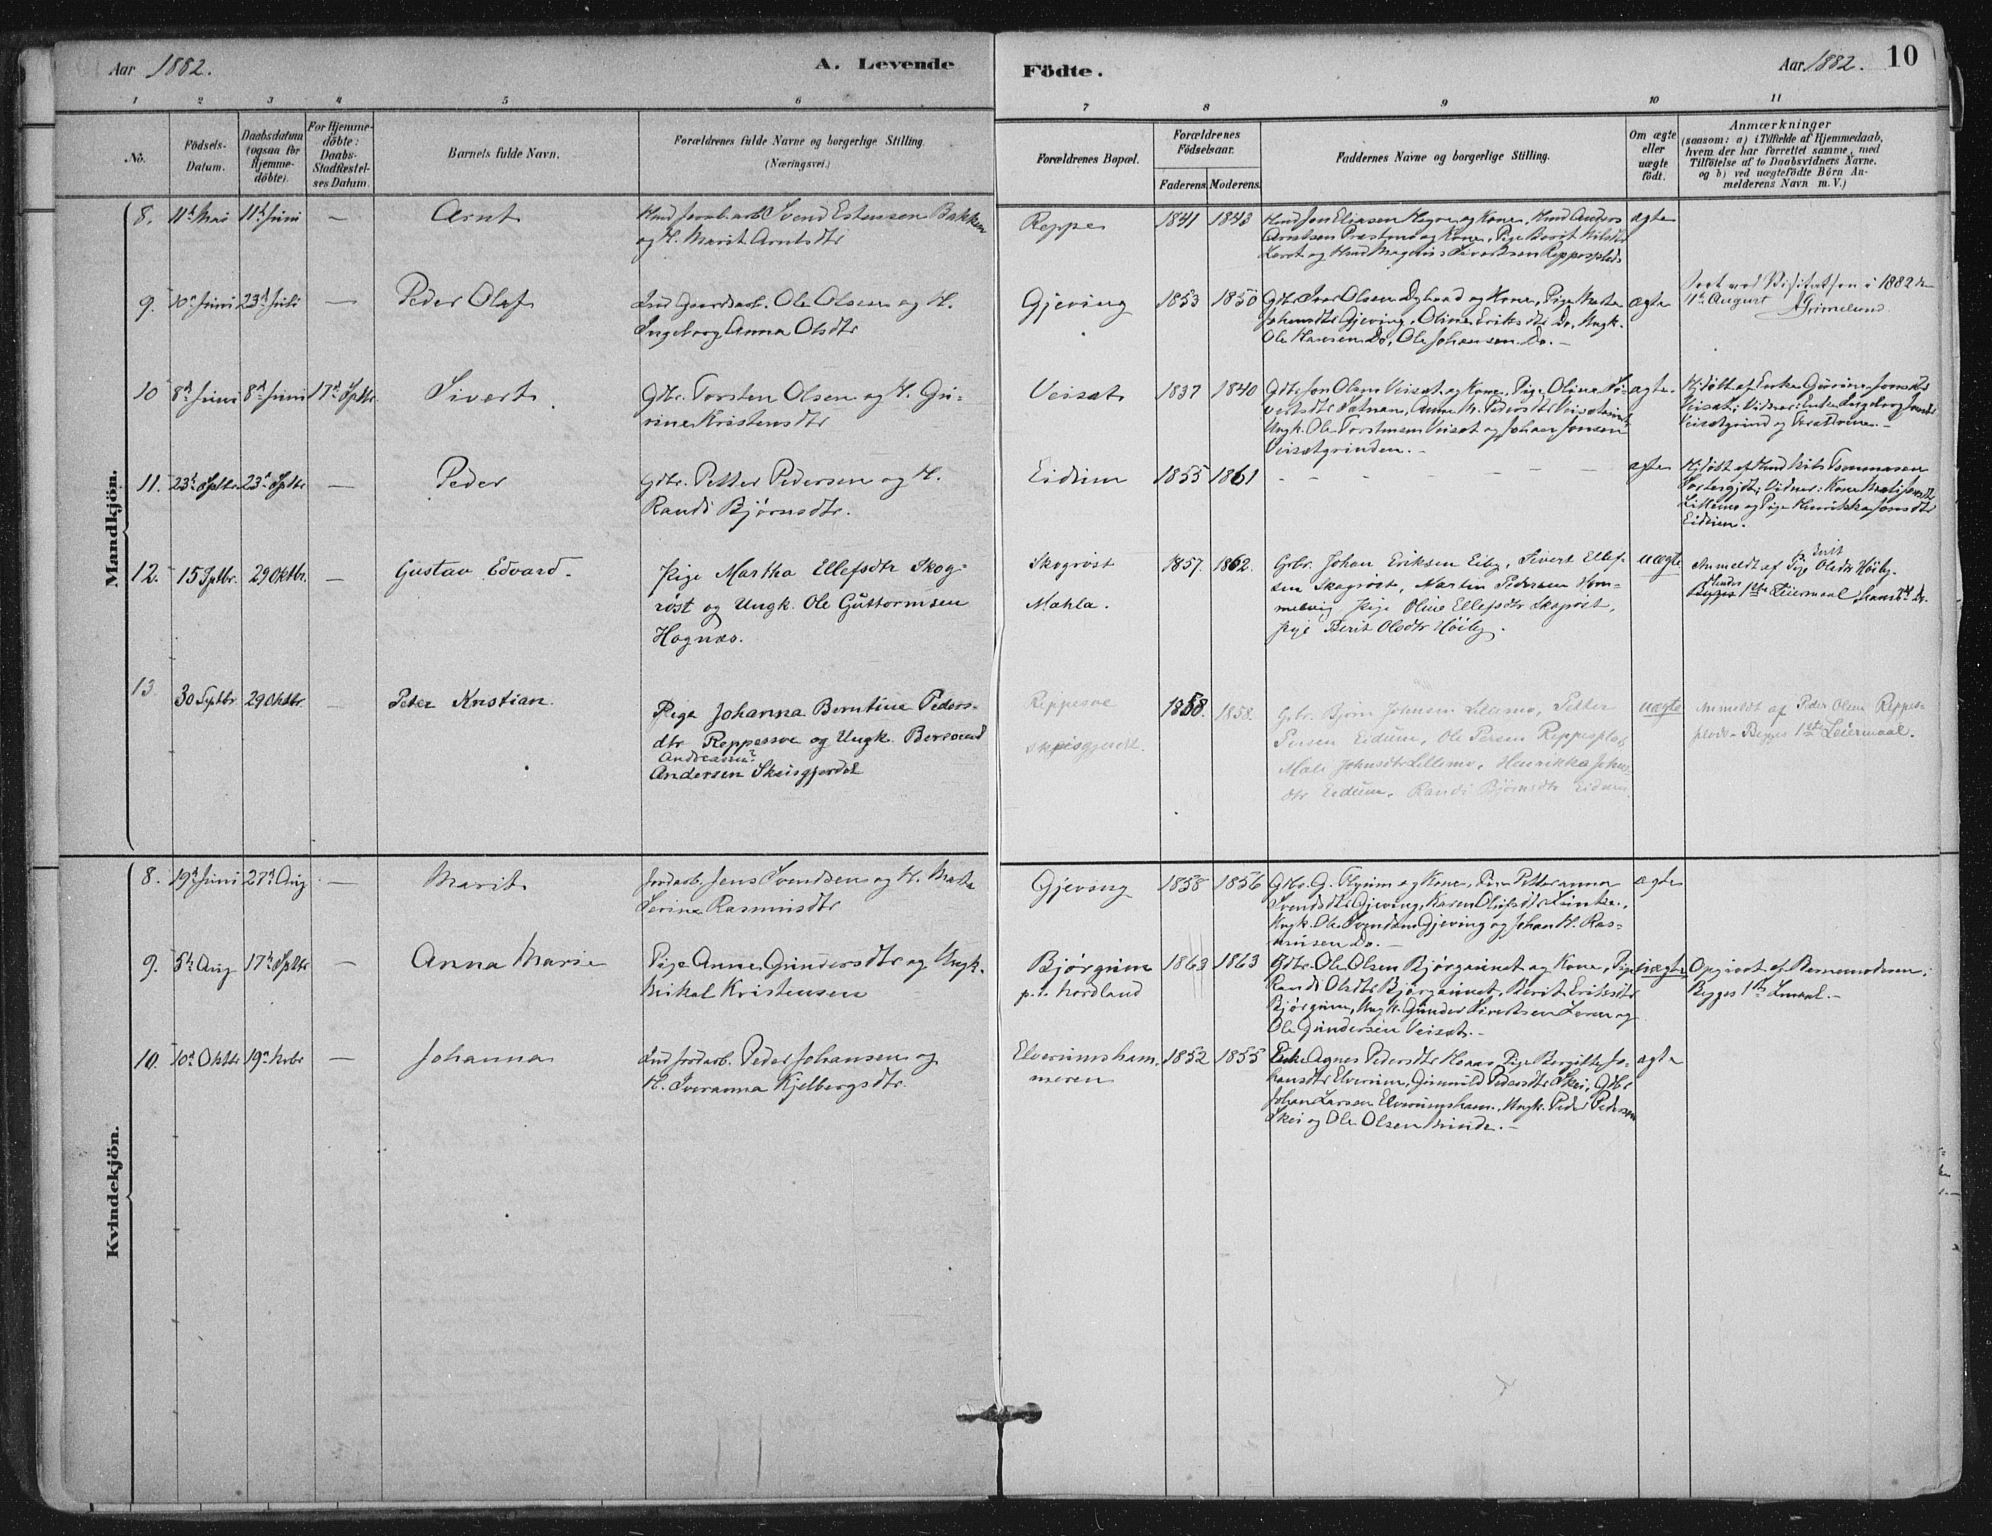 Aar 1882.
A. Levende
Födte.
Aar 1882.
10
1 2 3 4 5 6 7 8 9 10 11
No.
Födsels-Datum.
Daabsdatum (ogsaa for Hjemme-döbte).
For Hjemme-döbte: Daabs-Stadfæstel-ses Datum.
Barnets fulde Navn.
Forældrenes fulde Navne og borgerlige Stilling. (Næringsvei.)
Forældrenes Bopæl.
Forældrenes Födselsaar.
Faderens. Moderens.
Faddernes Navne og borgerlige Stilling.
Om ægte eller uægte födt.
Anmærkninger
(saasom: a) i Tilfælde af Hjemmedaab, hvem der har forrettet samme, med Tilföielse af to Daabsvidners Navne. og b) ved uægtefödte Börn An-melderens Navn m. V.)
Mandkjön.
8. 11te Mai 11te Juni — Arnt
Svend Estensen Bakken
og H. Marit Arntsdtr
Reppe 1841 1843
Jon Eliasen Hegre og Kone, Anders
Arntsen Præstmo og Kone, Pige Berit Nilsdtr
ægte
9. 10de Juni 23de Juli — Peder Olaf
Ind. Gaardarb. Ole Olsen og H.
Ingeborg Anna Olsdtr
Gjeving 1853 1850
Gbr. Ivar Olsen Dybvad og Kone, Pige Marta
Johansdtr Gjeving, Oline Eriksdtr Do, Ungk.
Ole Hansen Do, Ole Johansen Do. —
ægte
Seet ved Visitatsen i 1882
11te August
Grimelund
10 8de Juni 8de Juni 17de Sptbr. Sivert
Gbr. Torsten Olsen og H. Gu-
rine Kristensdtr
Veisat 1837 1840
Gbr. Jon Olsen Veisat og Kone, Pige Oline Si-
vertsdtr Satnan, Anne M. Pedersdtr
Ungk. Ole Torstensen Veisat og Johan Jonsen
Veisatgrinden. —
ægte
Hjdøbt af Enke Gurine Jonsdtr
Veisat; Vidner: Enke Ingeborg Jonsdtr
Veisatgrind og Forældrene. —
11. 23de Sptbr 23de Sptbr — Peder
Gbr. Petter Pedersen og H.
Randi Bjørnsdtr.
Eidum 1855 1861
- - - - - -
ægte
Hjdøbt af Nils Tommasen
Vidner: Kone Mali Jonsdtr
Lillemo og Pige Henrikka Jonsdtr
Eidum.
12. 15 Sptbr. 29 Oktbr. — Gustav Edvard.
Pige Martha Ellefsdtr Skog-
røst og Ungk. Ole Guttormsen
Hognæs.
Skogrøst
Mæhla.
1857. 1862.
Gbr. Johan Eriksen Eiby, Sivert Ellef-
sen Skogrøst, Martin Pedersen Hom-
melvig, Pige Oline Ellefsdtr Skogrøst,
Pige Berit Olsdtr Høiby.
uægte
Berit
Anmeldt af Pige Olsdtr Høiby.
Begges 1ste Leiermaal
13. 30 Septbr. 29 Oktbr. — Peter Kristian.
Pige Johanna Berntine Peders-
dtr Reppesve og Ungk. Bersvend
Andreassen?
Andersen Skeisgjerdet
Reppesve
Skeisgjerdet
1858. 1858.
Gbr. Bjørn Johnsen Lillemo, Petter
Persen Eidum, Ole Persen Reppesplads
Mali Johnsdtr Lillemo, Henrikka Johns-
dtr Eidum, Randi Bjørnsdtr Eidum.
uægte
Anmeldt af Peder Olsen Reppes-
plads - Begges 1ste Leiermaal.
Kvindekjön.
8. 19de Juni 27de Aug — Marit
Jordarb. Jens Svendsen og H. Marta
Serine Rasmusdtr
Gjeving 1858 1856
Gbr. G. Flyum og Kone, Pige Petteranna
Svendsdtr Gjeving, Karen Olufsdtr
Ungk. Ole Svendsen Gjeving og Johan H. Ras-
musen Do. —
ægte
9. 5te Aug 17de Sptbr — Anna Marie
Pige Anne Gundersdtr og Ungk.
Mikal Kristensen
Bjørgum
p.t. Nordland
1863 1863
Gbr. Ole Olsen Bjørgaunet og Kone, Pige
Randi Olsdtr Bjørgaunet, Berit Eriksdtr
Bjørgum, Ungk. Gunder Sivertsen Leren og
Ole Gundersen Veisat. —
uægte
Opgivet af Barnemoderen;
Begges 1ste Lmaal. —
10. 10de Oktbr 19de Nvbr — Johanna
Ind. Jordarb. Peder Johansen og
H. Iveranna Kjelbergsdtr.
Elverumsham-
meren
1852 1855
Enke Agnes Pedersdtr Moaas, Pige Bergitte Jo-
hansdtr Elverum, Gunnild Pedersdtr Skei, Gbr
Johan Larsen Elverumsham., Ungk. Peder Pedersen
Skei og Ole Olsen Minde. —
ægte